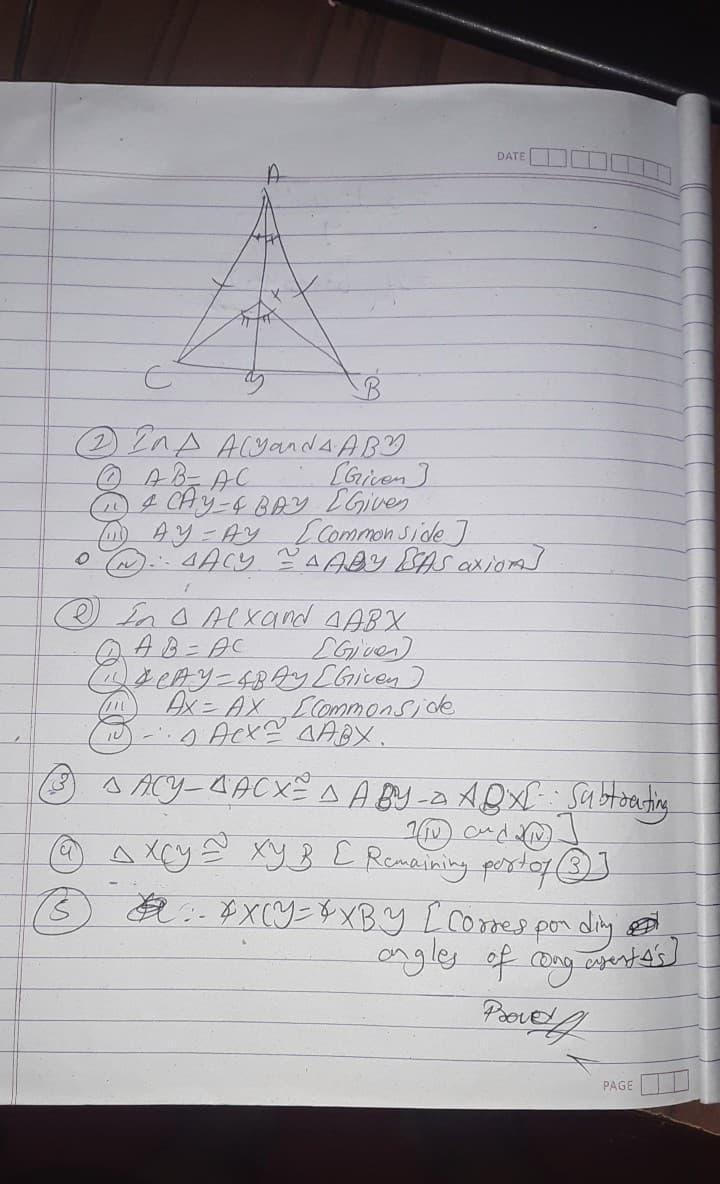 DATE
A
x
C
y
B
① In △ ACy and △ ABy
(i) AB = AC [Given]
(ii) ∡ CAy = ∡ BAY [Given
(iii) AY = AY [Common side]
(iv) ∴ △ACY ≅ △ ABY [SAS axiom]
② In △ ACX and △ABX
(i) AB = AC [Given]
(ii) ∡CAY = ∡BAY [Given]
(iii) AX = AX [Common side
(iv) ∴ △ ACX ≅ △ABX.
③ △ ACY - △ACX ≅ △ ABY - △ ABX [∵ Subtrating
1(iv) and 2(iv)]
④ △ XCY ≅ XYB [Remaining part of ③]
⑤ ∴ ∡XCY = ∡XBY [Corresponding
angles of congruent △'s]
Proved
PAGE